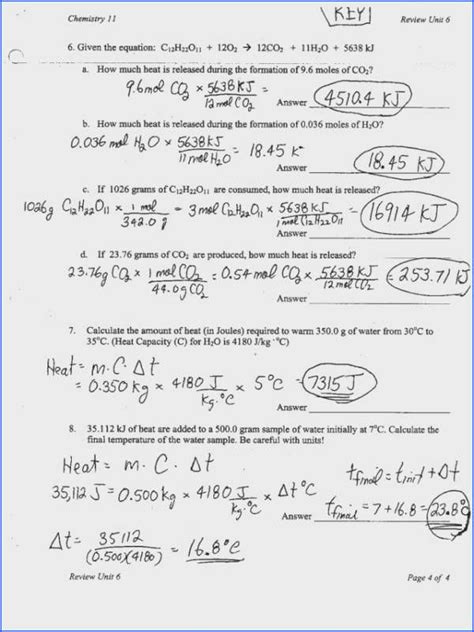 Chemistry 11 KEY! Review Unit 6
6. Given the equation: C₁₂H₂₂O₁₁ + 12O₂ → 12CO₂ + 11H₂O + 5638 kJ
a. How much heat is released during the formation of 9.6 moles of CO₂?
9.6mol CO₂ × 5638 KJ / 12 mol CO₂
Answer 4510.4 KJ
b. How much heat is released during the formation of 0.036 moles of H₂O?
0.036 mol H₂O × 5638KJ / 11 mol H₂O = 18.45 K
Answer 18.45 KJ
c. If 1026 grams of C₁₂H₂₂O₁₁ are consumed, how much heat is released?
1026g C₁₂H₂₂O₁₁ × 1 mol / 342.0 g = 3mol C₁₂H₂₂O₁₁ × 5638 KJ / 1mol C₁₂H₂₂O₁₁ = 16914 KJ
Answer
d. If 23.76 grams of CO₂ are produced, how much heat is released?
23.76g CO₂ × 1 mol CO₂ / 44.0g CO₂ = 0.54 mol CO₂ × 5638 KJ / 12 mol CO₂ = 253.71 KJ
Answer
7. Calculate the amount of heat (in Joules) required to warm 350.0 g of water from 30°C to
35°C. (Heat Capacity (C) for H₂O is 4180 J/kg·°C)
Heat = m·C·Δt
= 0.350 kg × 4180 J / kg·°C × 5°C = 7315 J
Answer
8. 35.112 kJ of heat are added to a 500.0 gram sample of water initially at 7°C. Calculate the
final temperature of the water sample. Be careful with units!
Heat = m. C. Δt
tfinal = tinit + Δt
35,112 J = 0.500 kg × 4180 J / kg·°C × Δt°C
Answer tfinal = 7 + 16.8 = 23.8°
Δt = 35112 / (0.500)(4180) = 16.8°C
Review Unit 6 Page 4 of 4